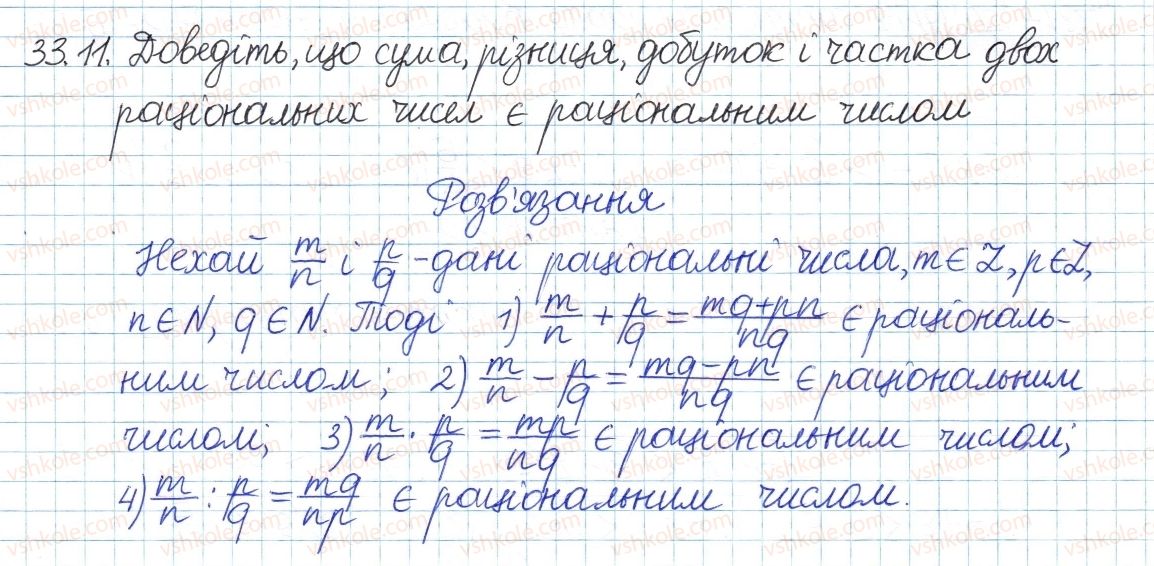 33.11. Доведіть, що сума, різниця, добуток і частка двох
раціональних чисел є раціональним числом
Розв'язання
Нехай m/n і p/q - дані раціональні числа, m ∈ Z, p ∈ Z,
n ∈ N, q ∈ N. Тоді 1) m/n + p/q = (mq+pn)/(nq) є раціональ-
ним числом; 2) m/n - p/q = (mq-pn)/(nq) є раціональним
числом; 3) m/n · p/q = (mp)/(nq) є раціональним числом;
4) m/n : p/q = (mq)/(np) є раціональним числом.